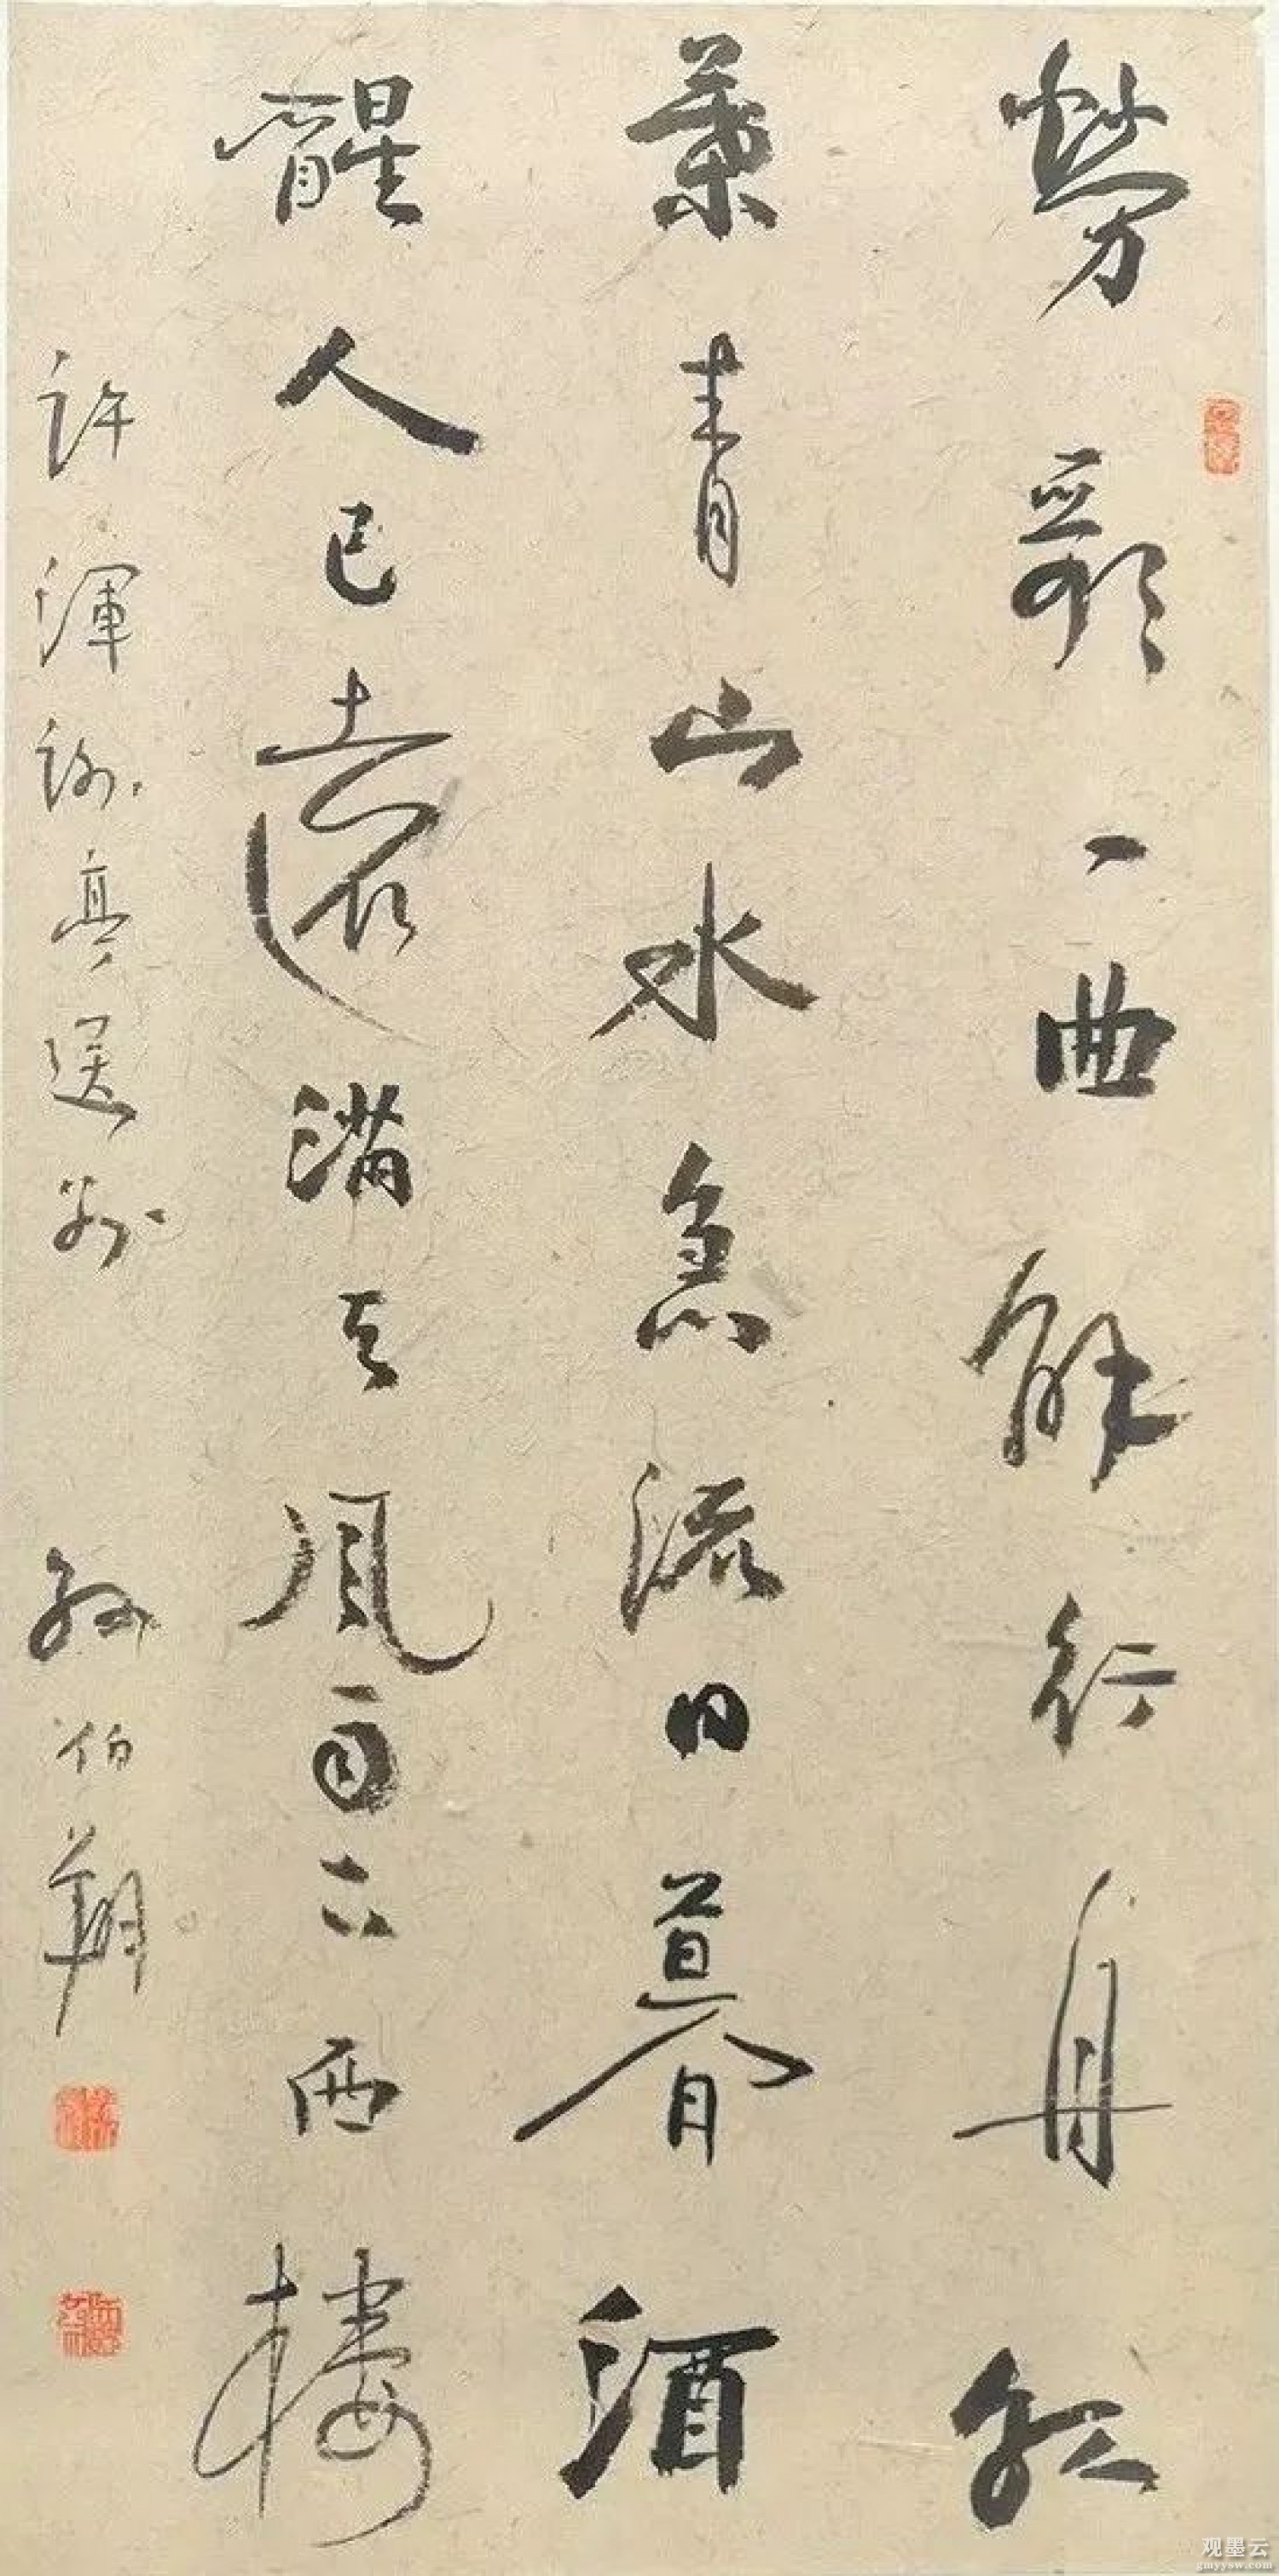 勞歌一曲解行舟紅
葉青山水急流日暮酒
醒人已遠滿天風雨下西樓
許渾謝亭送別 孫伯翔
观墨云
gmyysw.com